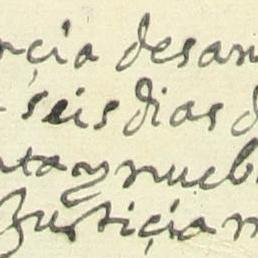 rçia desan
seis dias d
nta y nueb
Justiçia m